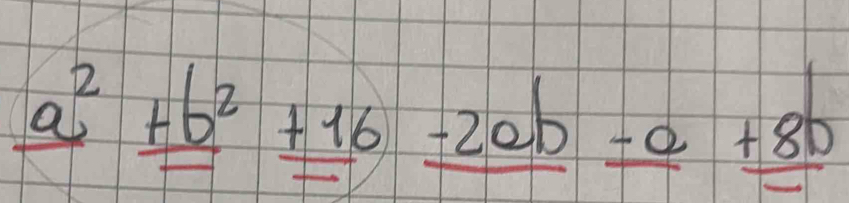 a² +b² +16 -2ab -a +8b